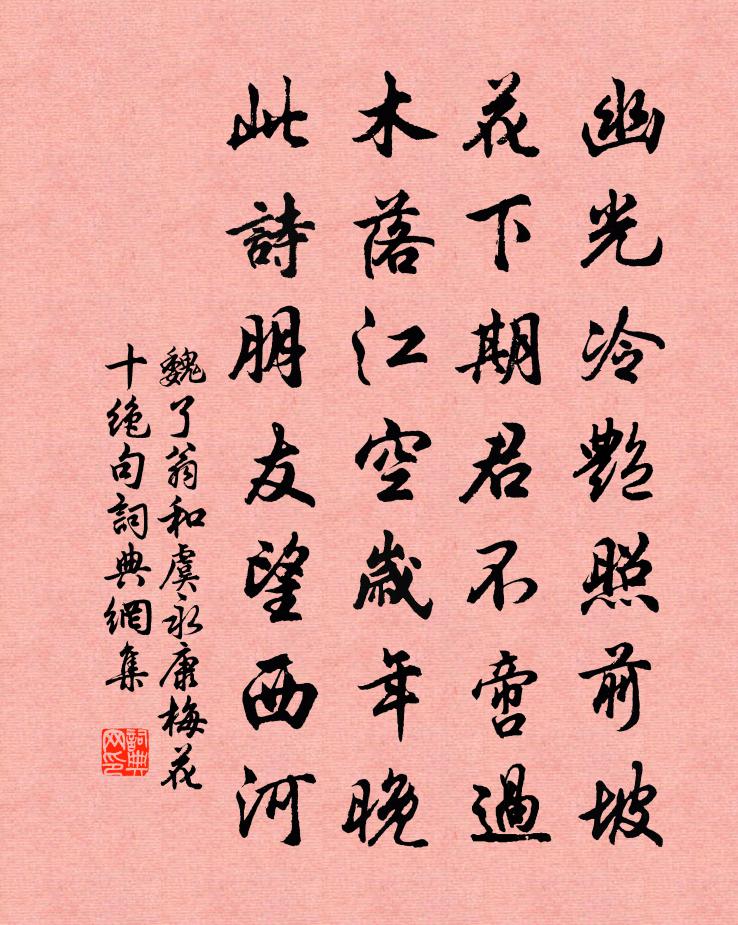 幽光冷艷照前坡
花下期君不啻過
木落江空歲年晚
此詩朋友望西河
魏了翁和虞永康梅花
十絕句詞典網集
詞典
网印